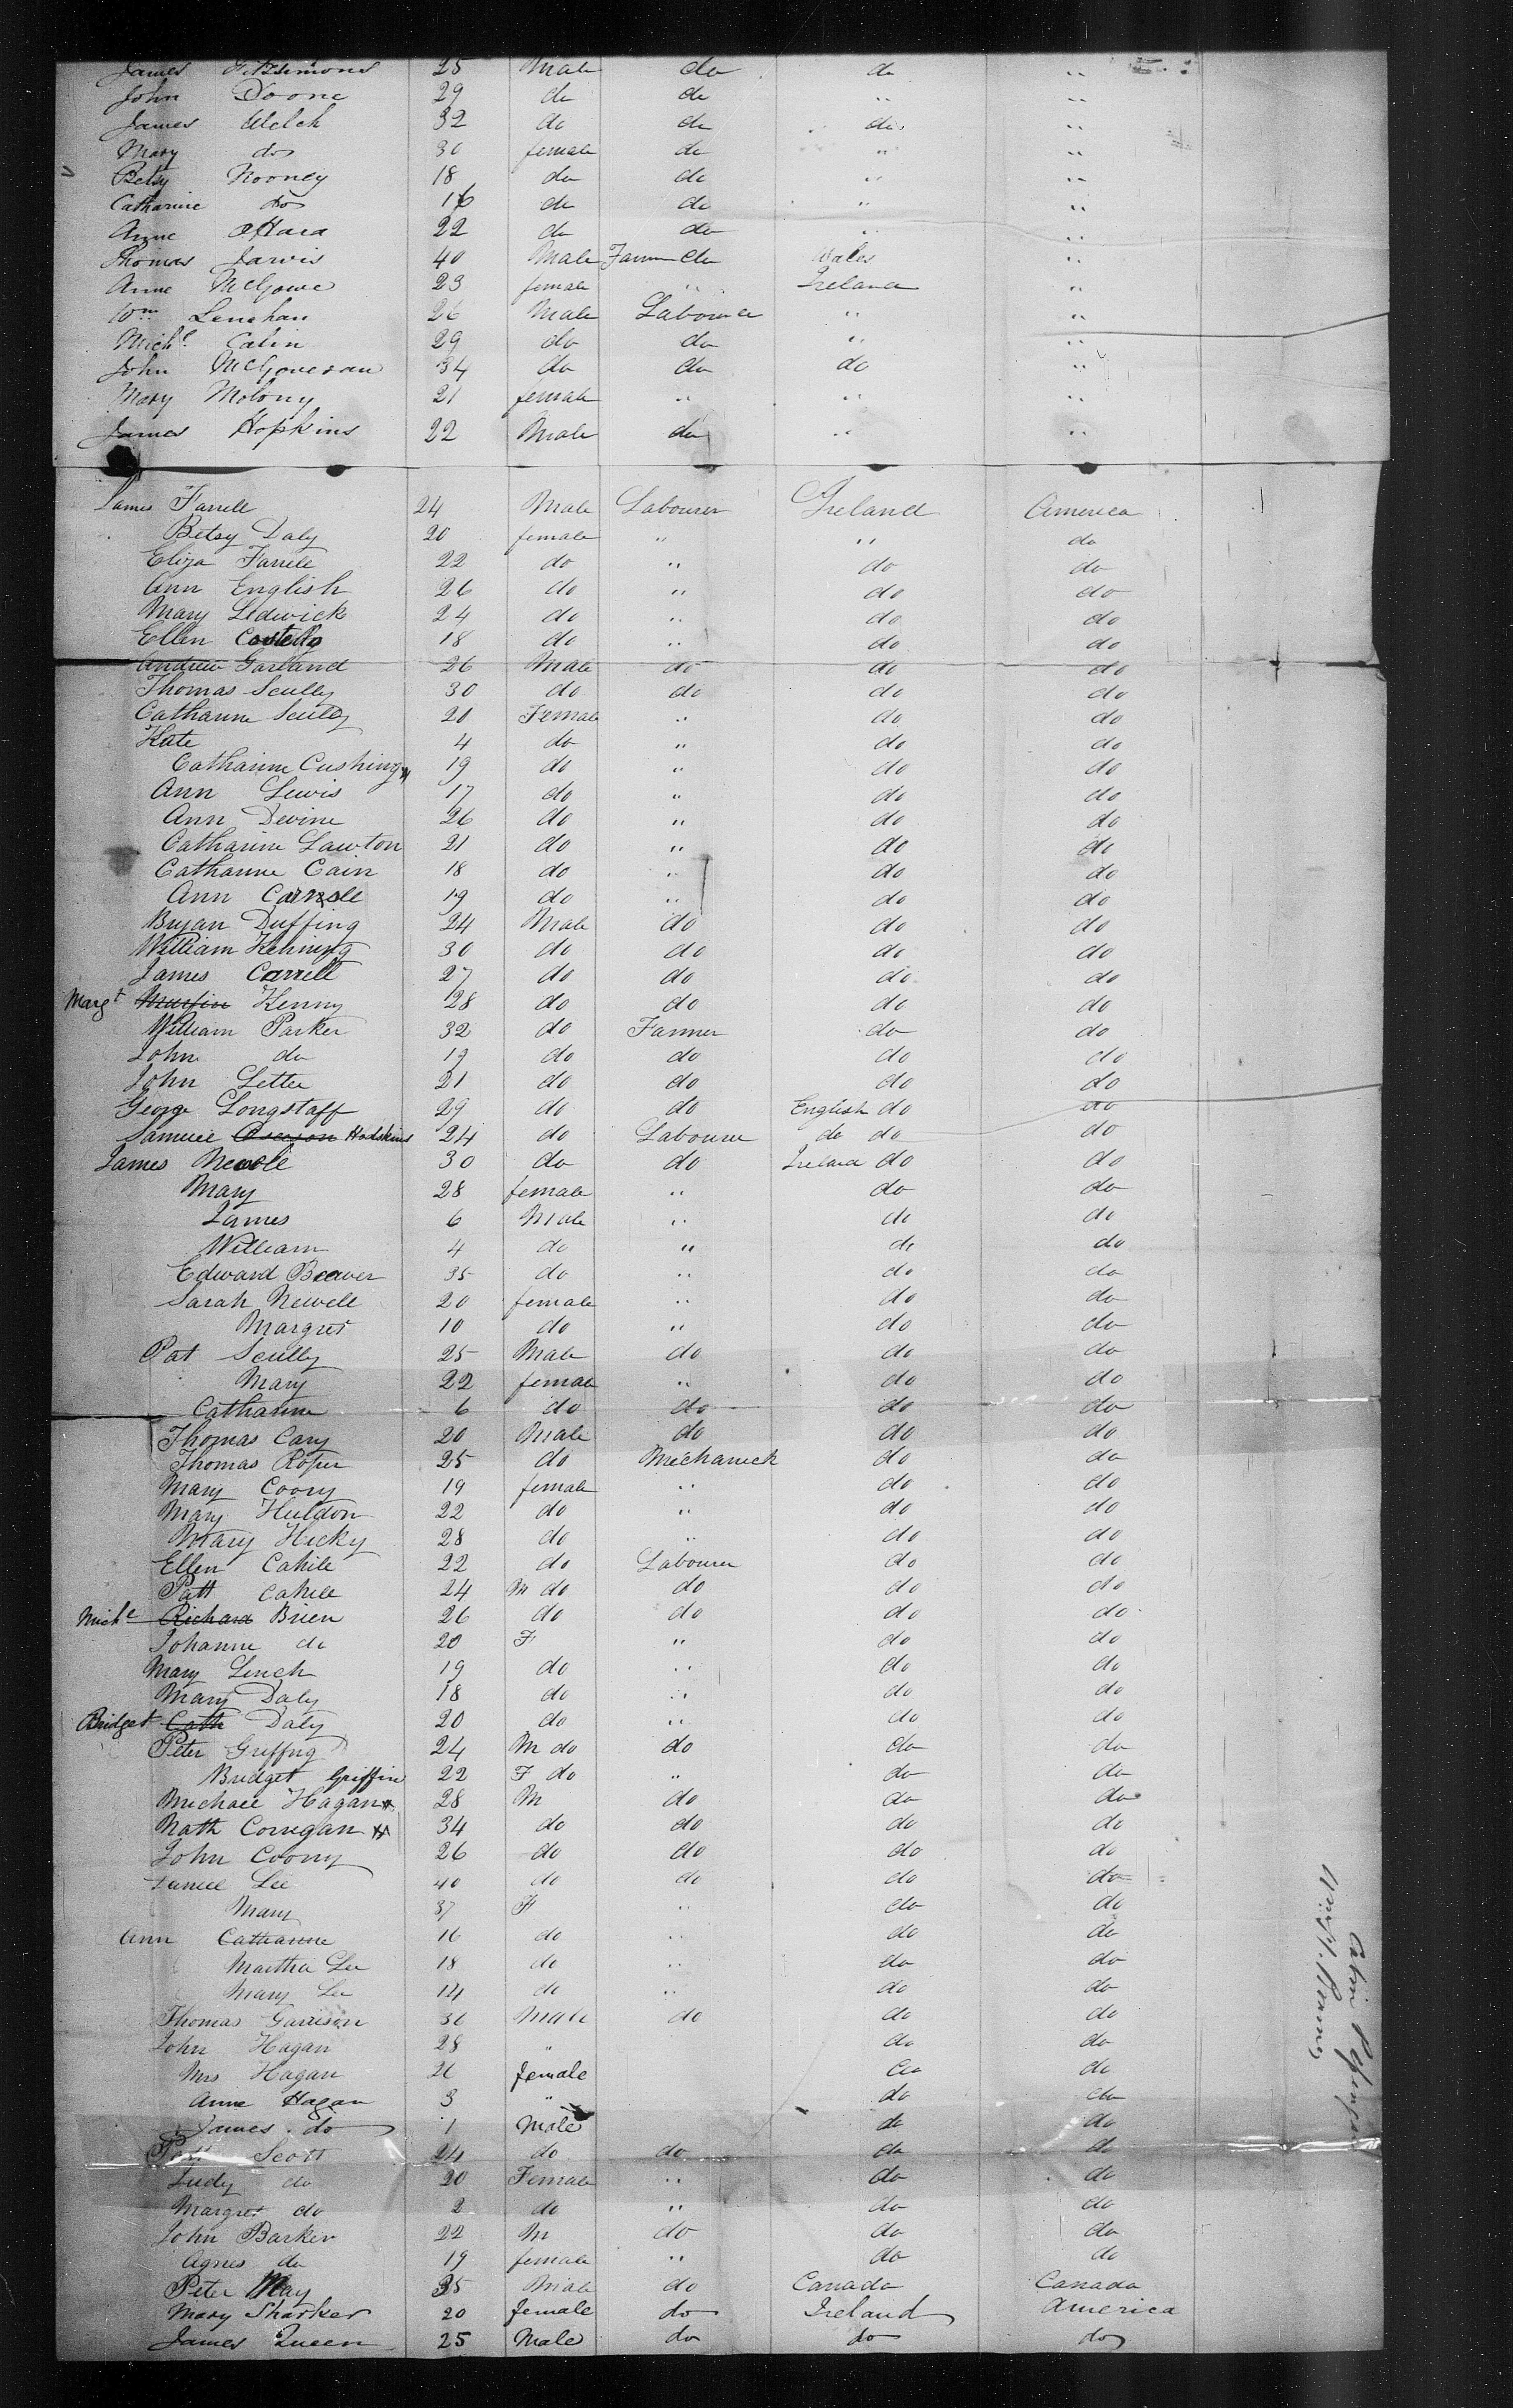 James Fitzsimons 25 Male do do "
John Doone 29 do do " "
James Welch 32 do do do "
Mary do 30 female do " "
Betsy Nooney 18 do do " "
Catharine do 16 do do " "
Anne OHara 22 do do " "
Thomas Jarvis 40 Male Farm do Wales "
Anne McGowe 23 female " Ireland "
Wm Lenehan 26 Male Labourer " "
Michl Calin 29 do do " "
John McGoveran 34 do do do "
Mary Molony 21 female " " "
James Hopkins 22 Male do " "
James Farrell 24 Male Labourer Ireland America
Betsy Daly 20 female " " do
Eliza Farrell 22 do " do do
Ann English 26 do " do do
Mary Ledwick 24 do " do do
Ellen Costello 18 do " do do
Andrew Garland 26 Male do do do
Thomas Scully 30 do do do do
Catharine Scully 20 Female " do do
Kate 4 do " do do
Catharine Cushing 19 do " do do
Ann Lewis 17 do " do do
Ann Devine 26 do " do do
Catharine Lawton 21 do " do do
Catharine Cain 18 do " do do
Ann 19 do " do do
Bryan Duffing 24 Male do do do
William 30 do do do do
James Carrell 27 do do do do
Margt Martin Kenny 28 do do do do
William Parker 32 do Farmer do do
John do 19 do do do do
John Letter 21 do do do do
George Longstaff 29 do do English do do
Samuel Hodskins 24 do Labourer do do do
James Newell 30 do do Ireland do do
Mary 28 female " do do
James 6 Male " do do
William 4 do " do do
Edward Beaver 35 do " do do
Sarah Newell 20 female " do do
Margret 10 do " do do
Pat Scully 25 Male do do do
Mary 22 female " do do
Catharine 6 do do do do
Thomas Cary 20 Male do do do
Thomas Roper 25 do Mechanick do do
Mary Coory 19 female " do do
Mary Huldon 22 do " do do
Mary Hicky 28 do " do do
Ellen Cahill 22 do Labourer do do
Patt Cahill 24 M do do do do
Michl Richard Brien 26 do do do do
Johanne do 20 F " do do
Mary Linch 19 do " do do
Mary Daly 18 do " do do
Bridget Cath Daly 20 do " do do
Peter Griffing 24 M do do do do
Bridget Griffin 22 F do " do do
Michael Hagan 28 M do do do
Math Corregan 34 do do do do
John Coony 26 do do do do
Lee 40 do do do do
Mary 37 F " do do
Ann Catharine 16 do " do do
Martha Lee 18 do " do do
Mary Lee 14 do " do do
Thomas Garrison 36 Male do do do
John Hagan 28 " do do
Mrs Hagan 26 female do do
Anne Hagan 3 " do do
James do 1 Male do do
Patt Scott 24 do do do do
Judy do 20 Female " do do
Margret do 2 do " do do
John Barker 22 M do do do
Agnes do 19 female " do do
Peter May 35 Male do Canada Canada
Mary Sharker 20 female do Ireland America
James Queen 25 Male do do do